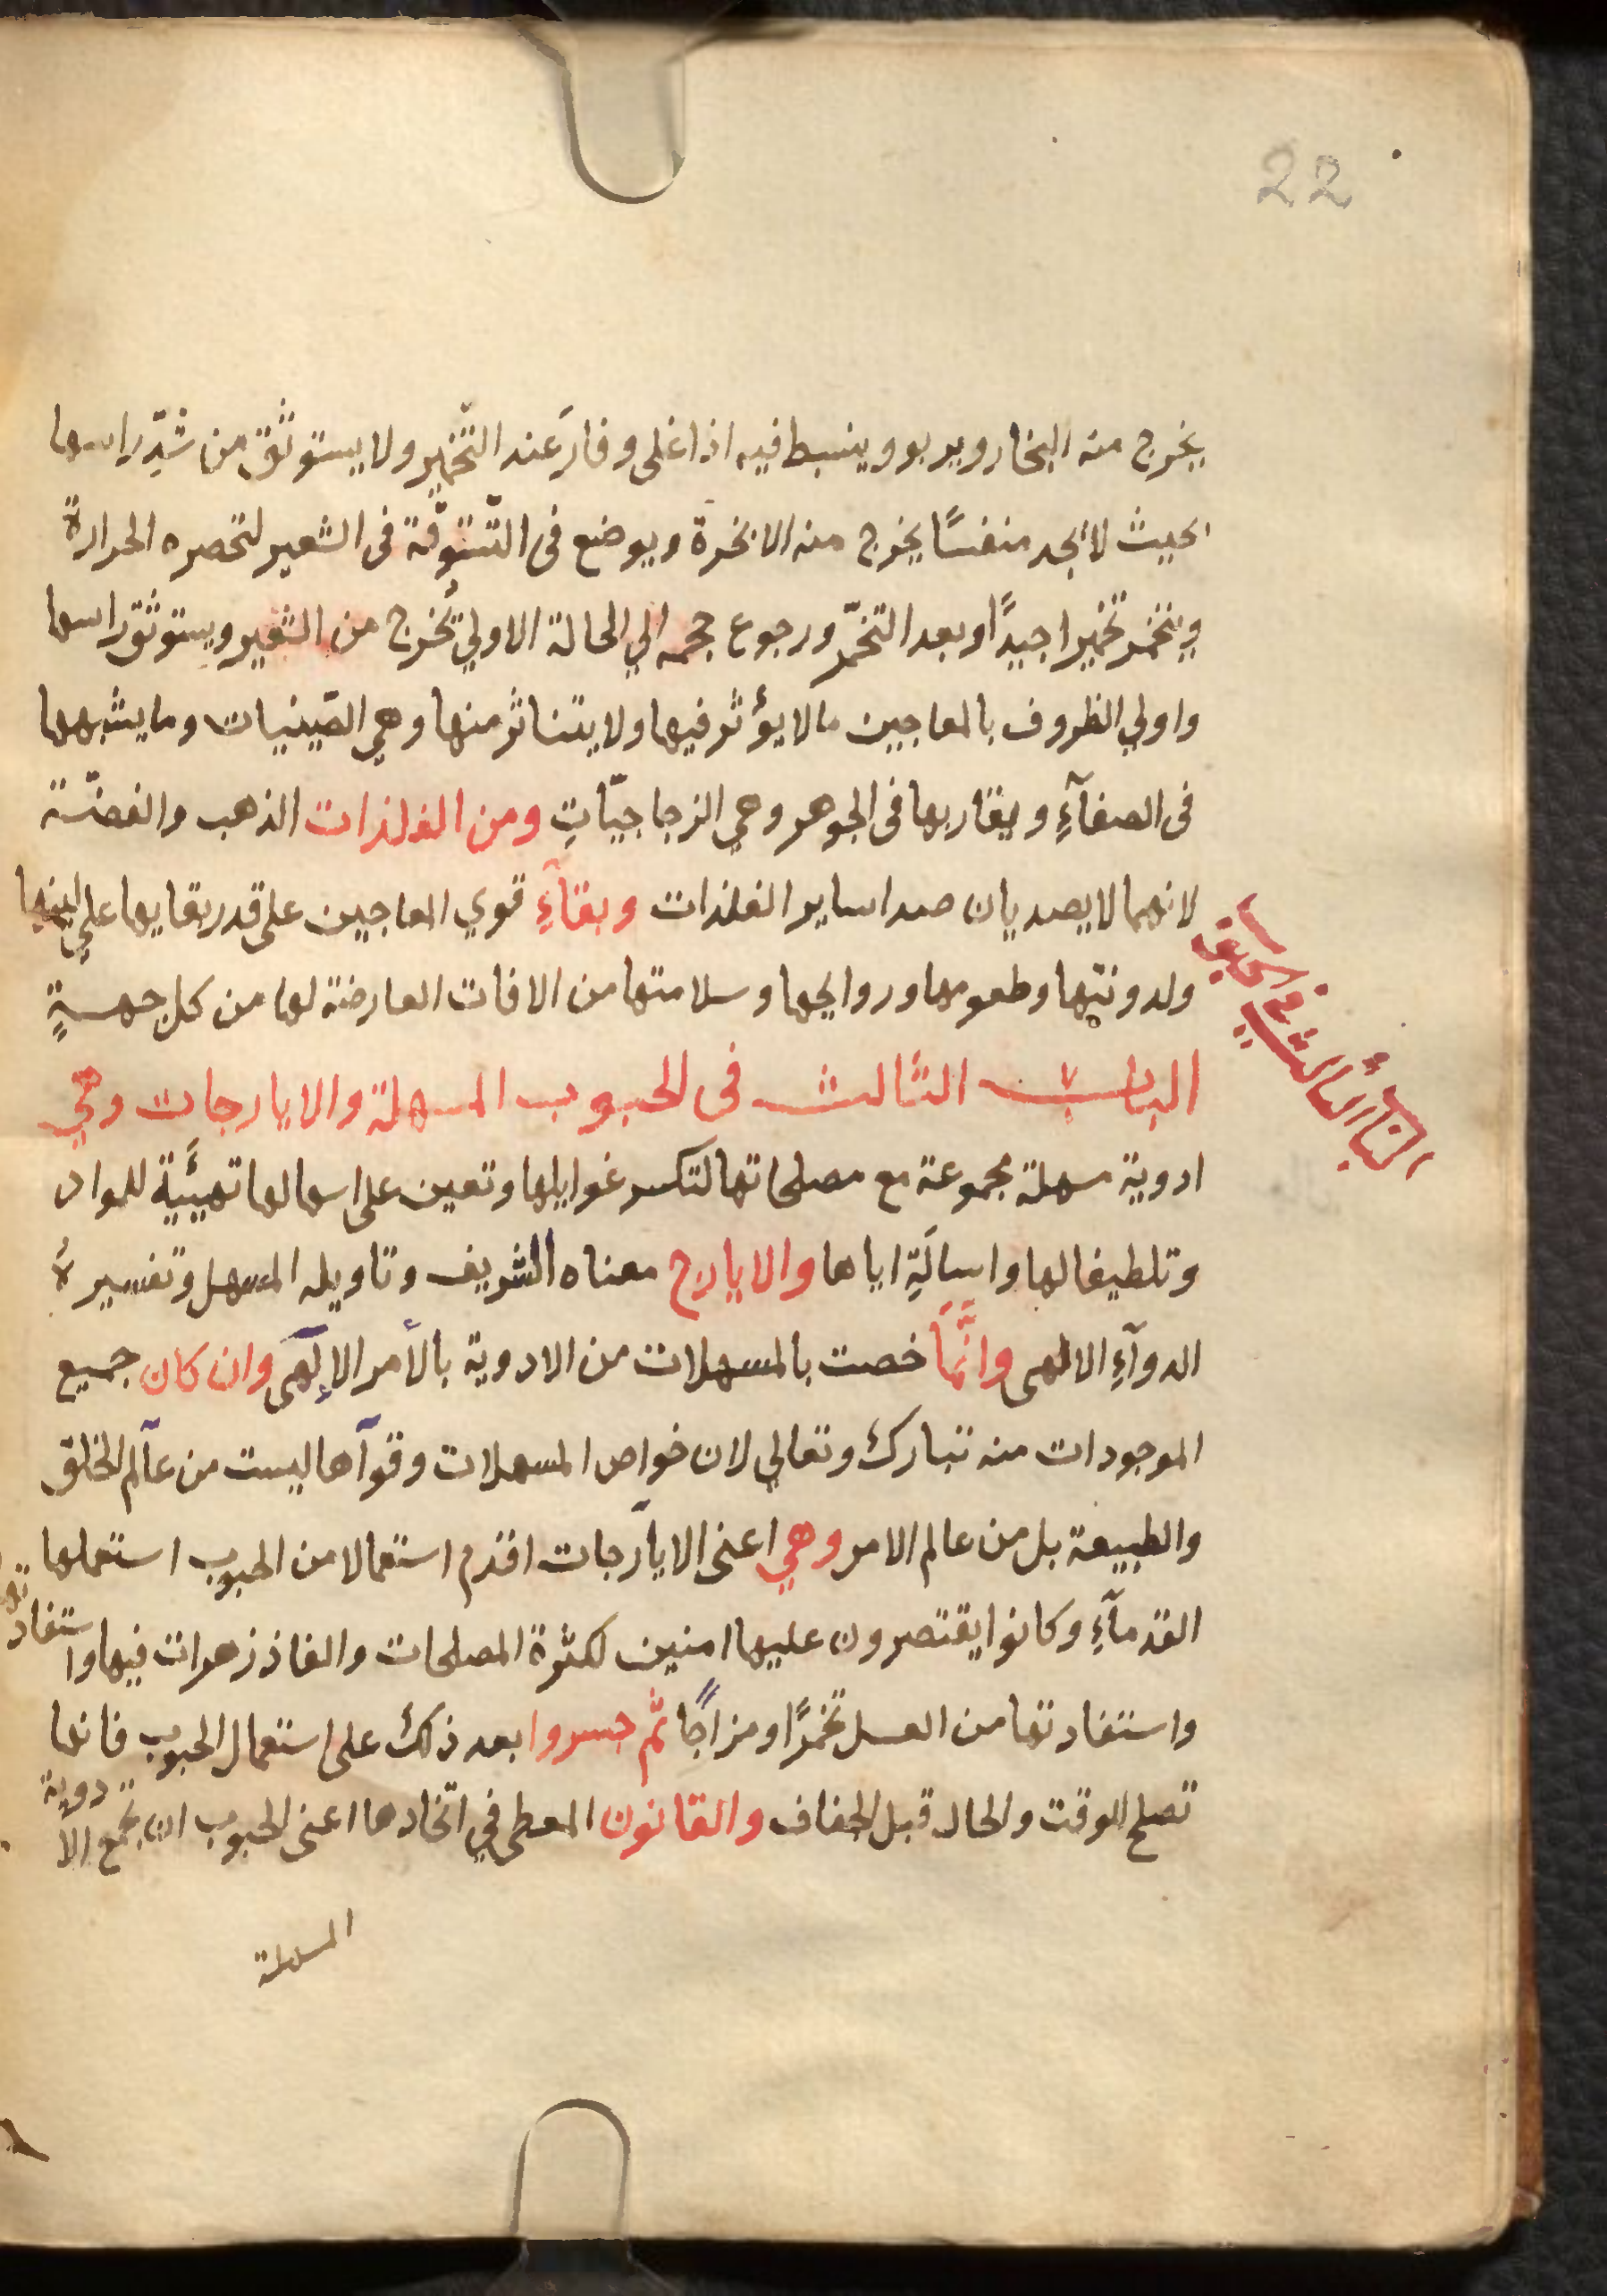 22
يخرج منه البخار ويربو وينبسط فيه اذا غلى وفارَ عند التّخمير ولا يستوثق من شدِّ راسها
بحيث لا تجد منفسًا يخرج منه الابخرة ويوضع في التّستوقة في الشعير لتحصره الحرارة
ويتخمّر تخميرا جيدًا وبعد التخمّر ورجوع حجمه الي الحالة الاولي تُخرج من الشعير ويستوثق راسها
واولي الظروف بالمعاجين ما لا يؤثر فيها ولا يتناثر منها وهي الصّينيات وما يشبهها
في الصفآءِ ويقاربها في الجوهر وهي الزجاجيّاتِ ومن الفلذات الذهب والفضّة
لانهما لا يصديان صدا ساير الفلذات وبقآءِ قوي المعاجين على قدر بقايها علي لينها
ولدونتها وطعومها وروايحها وسلامتها من الافات العارضة لها من كل جهةٍ
الباب الثالث في
الباب الثالث في الحبوب المسهلة والايارجات وهي
ادوية مسهلة مجموعة مع مصلحاتها لتكسر غوايلها وتعين على اسهالها تهيئية للمواد
وتلطيفا لها واسالَةِ اياها والايارج معناه الشريف وتاويله المسهل وتفسيره
الدوآءِ الالهى وانَّمَا خصت بالمسهلات من الادوية بالأمر الإلَهى وان كان جميع
الموجودات منه تبارك وتعالي لان خواص المسهلات وقوآها ليست من عآلم الخلق
والطبيعة بل من عالم الامر وهي اعنى الايآرجات اقدم استعمالا من الحبوب استعملها
القدمآءِ وكانوا يقتصرون عليها امنين لكثرة المصلحات والفاذزهرات فيها واستفاد تها
واستفادتها من العسل تخمرًا ومزاجًا ثم جسروا بعد ذلك على استعمال الحبوب فانها
تصلح الوقت والحال قبل الجفاف والقانون المعطى في اتّخادها اعنى الحبوب ان يجمع الادوية
المسهلة